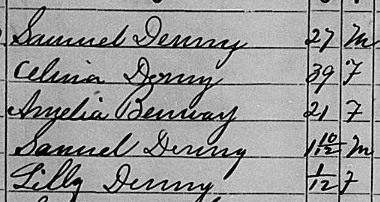 Samuel Denny 27 M
Celina Denny 39 F
Amelia Benway 21 F
Samuel Denny 1 10/12 M
Lilly Denny 1/12 F